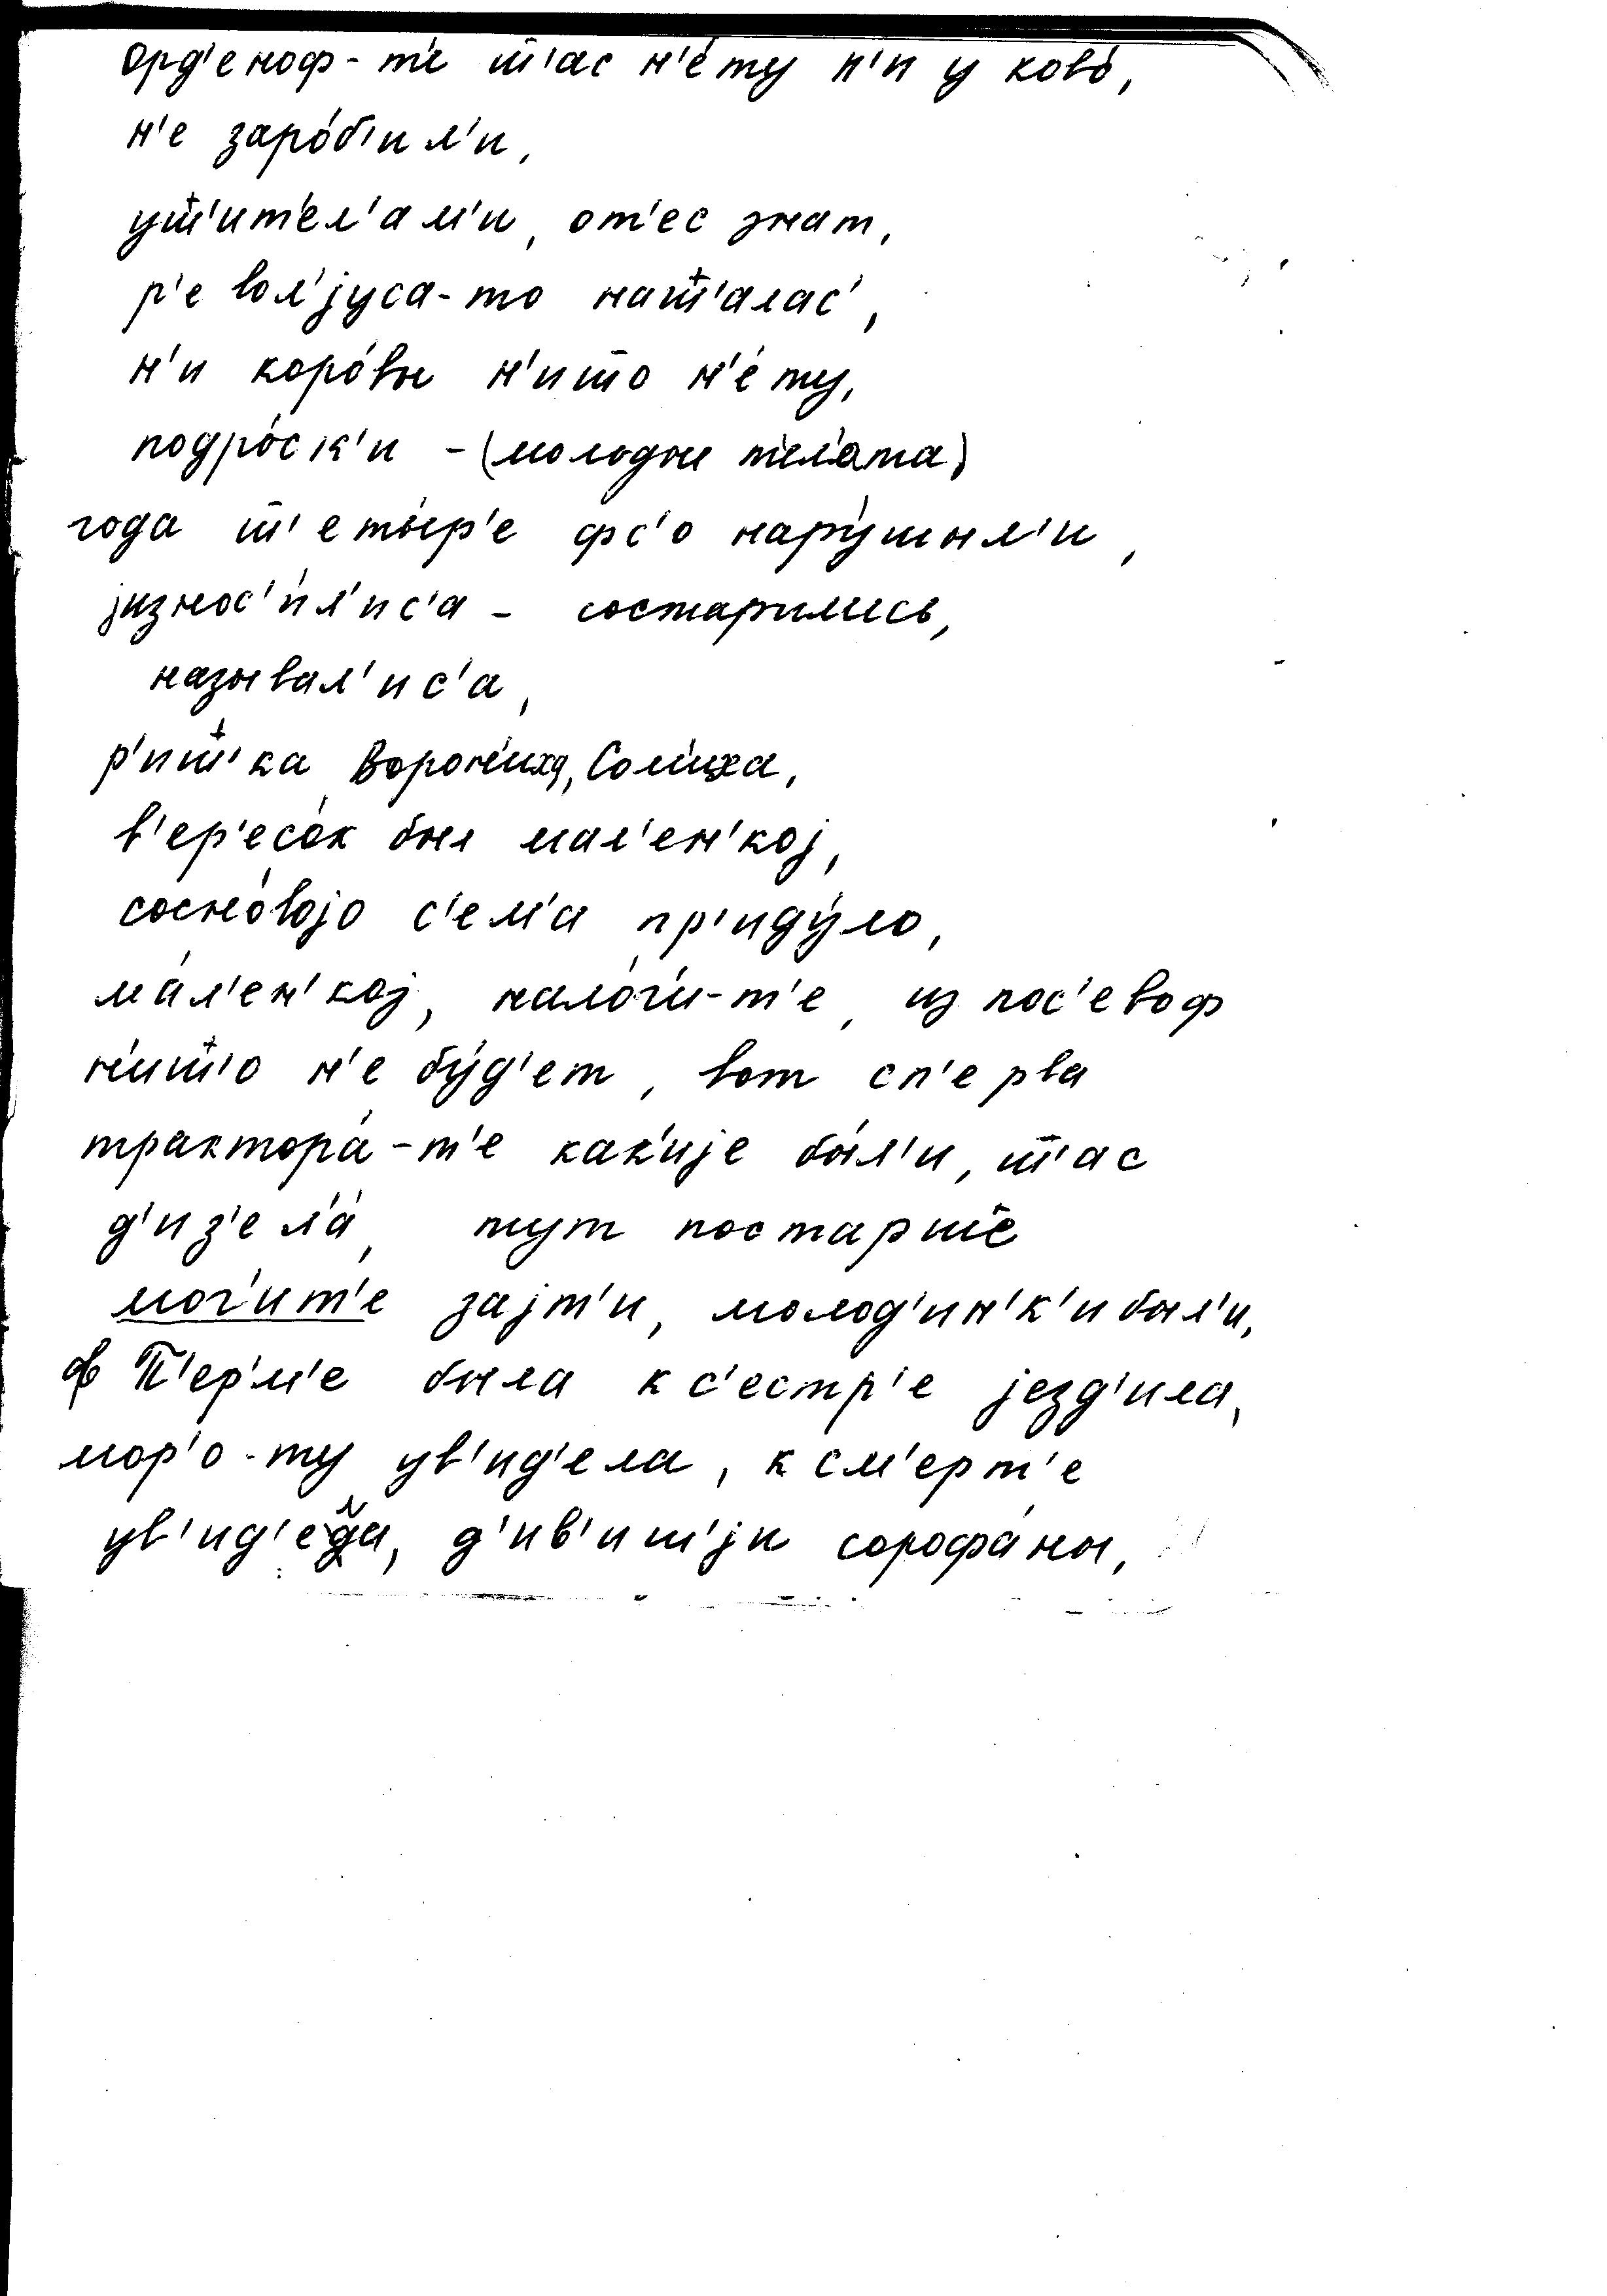 орд'еноф-т'е ш̅'ас н'е́ту н'и у ково́,
н'е заро́б'ил'и,
уш̅'ит'ел'ам'и, от'ес знат,
р'евол'јуса-то наш̅'алас',
н'и коро́вы н'иш̅о н'е́ту,
подро́ск'и - (молодые т'ел'ата)
года ш̅'еты́р'е фс'о нару́шыл'и,
јизнос'и́л'ис'а - состарились,
называл'ис'а,
р'иш̅'каВорон'иха, Сол'иха,
в'ер'есо́к был мал'ен'кој,
сосно́војо с'ем'а пр'иду́ло,
ма́л'ен'кој, нало́г'и-т'е, из пос'евоф
н'иш̅'о н'е бу́д'ет, вот сп'ерва
трактора́-т'е как'ије бы́л'и, ш̅'ас
д'из'ел'а́, тут постарше
мог'ит'е зајт'и, молод'ин'к'и был'и,
ф П'ер'м'е была к с'естр'е језд'ила,
мор'о-ту ув'ид'ела, к см'ерт'е
ув'ид'ела, д'ив'иш'ји сорофа́ны,